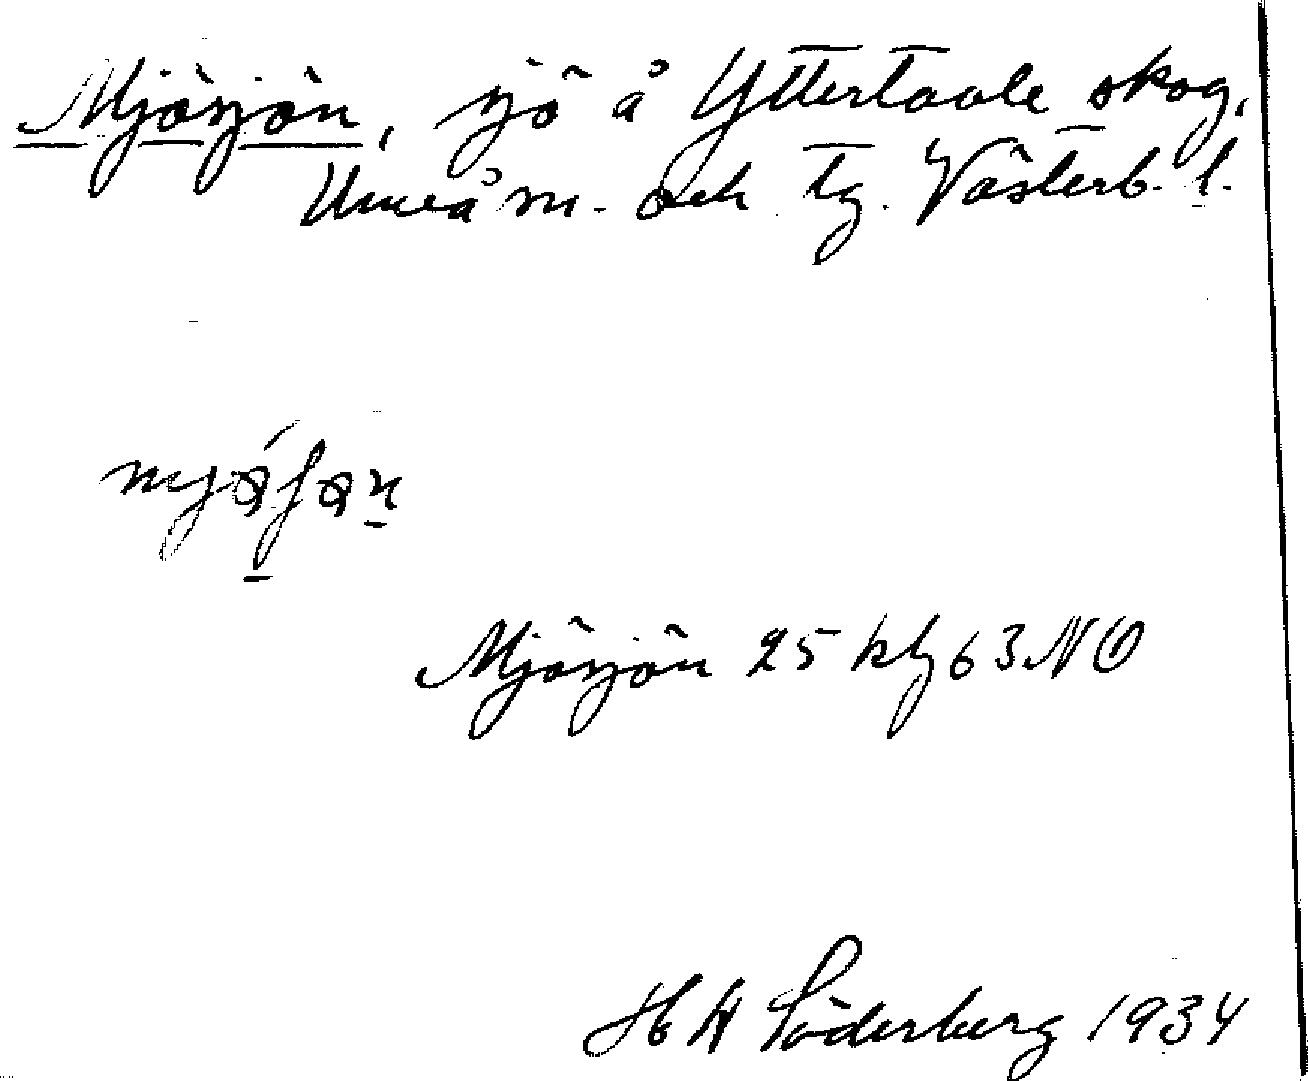 Mjösjön, sjö å Yttertavle skog,
Umeå sn. och tg. Västerb. l.
Mjösjön 25 kbl 63 NO
H H Söderberg 1934